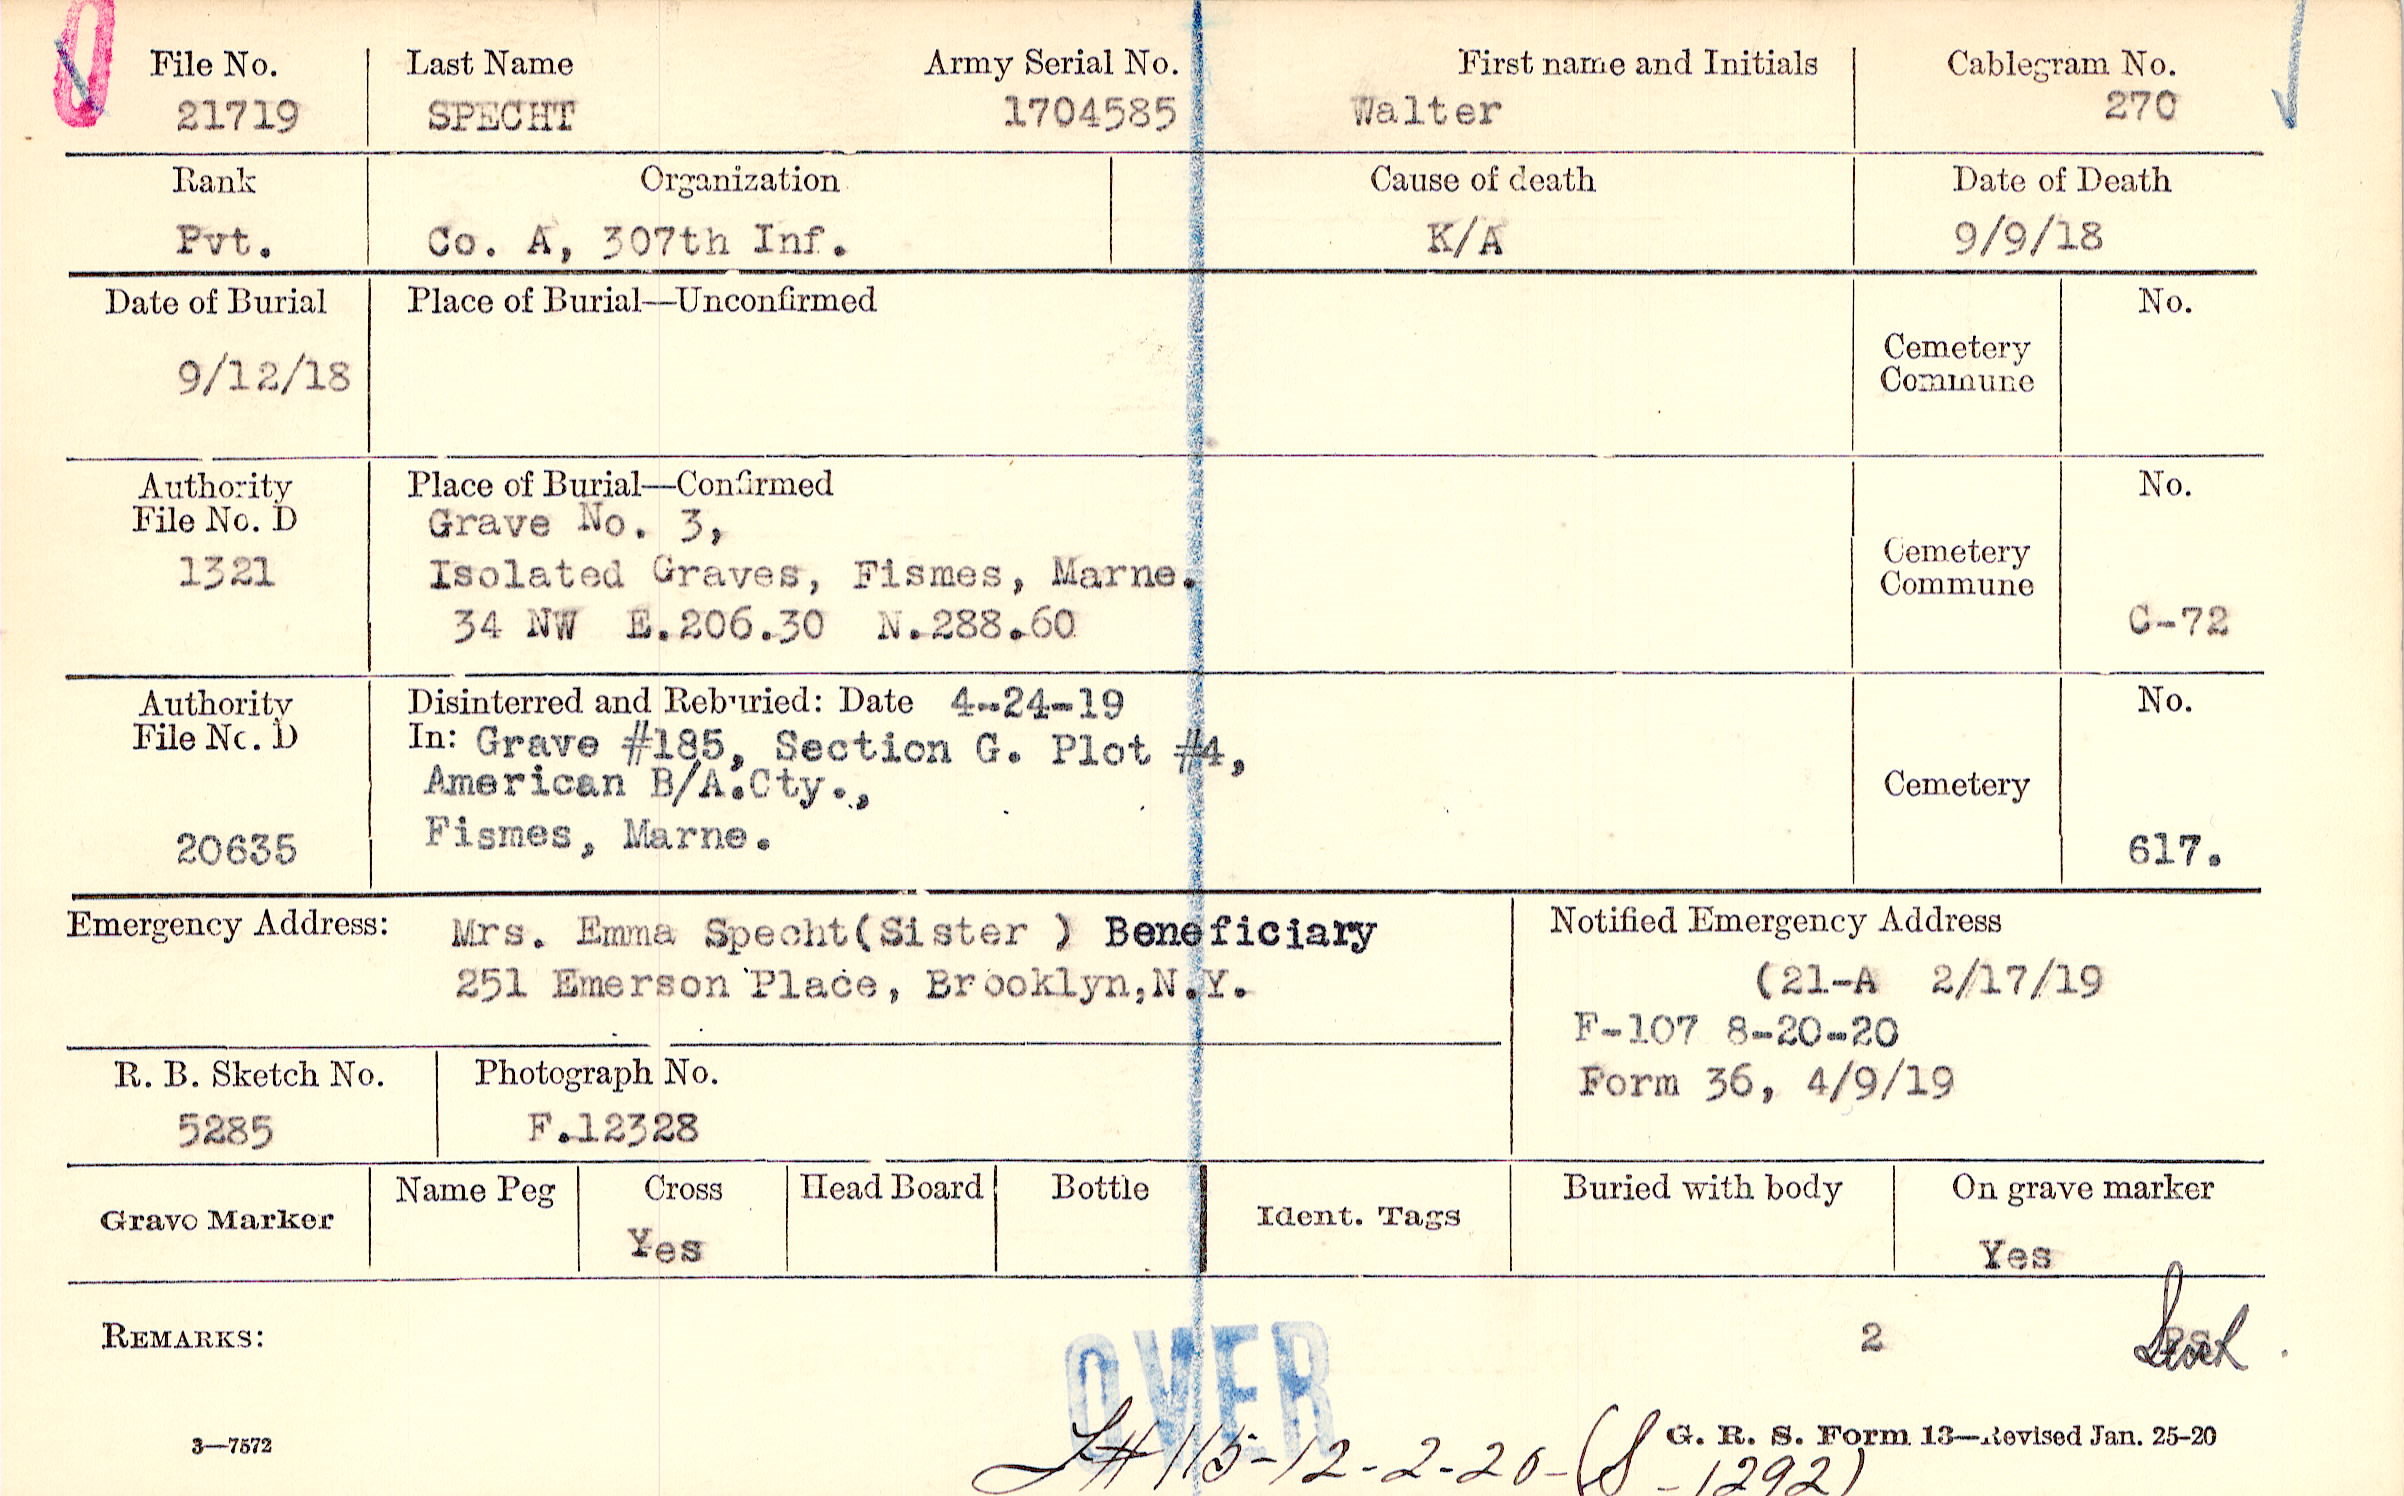 File No. Last Name Army Serial No. First name and Initials Cablegram No.
21719 SPECHT 1704585 Walter 270
Rank Organization Cause of death Date of Death
Pvt. Co. A, 307th Inf. K/A 9/9/18
Date of Burial Place of Burial—Unconfirmed No.
Cemetery
Commune
9/12/18
Authority Place of Burial—Confirmed No.
File No. D Grave No. 3,
1321 Isolated Graves, Fismes, Marne.
Cemetery
Commune
34 NW E.206.30 N.288.60 C-72
Authority Disinterred and Reburied: Date 4-24-19 No.
File No. D In: Grave #185, Section G. Plot #4,
American B/A.Cty., Cemetery
20635 Fismes, Marne. 617.
Emergency Address: Mrs. Emma Specht(Sister ) Beneficiary
251 Emerson Place, Brooklyn,N.Y.
Notified Emergency Address
(21-A 2/17/19
F-107 8-20-20
Form 36, 4/9/19
R. B. Sketch No. Photograph No.
5285 F.12328
Grave Marker Name Peg Cross Head Board Bottle Ident. Tags Buried with body On grave marker
Yes Yes
REMARKS: 2
OVER
115-12-2-20-(S
-1292)
3—7572 G. R. S. Form 13—Revised Jan. 25-20